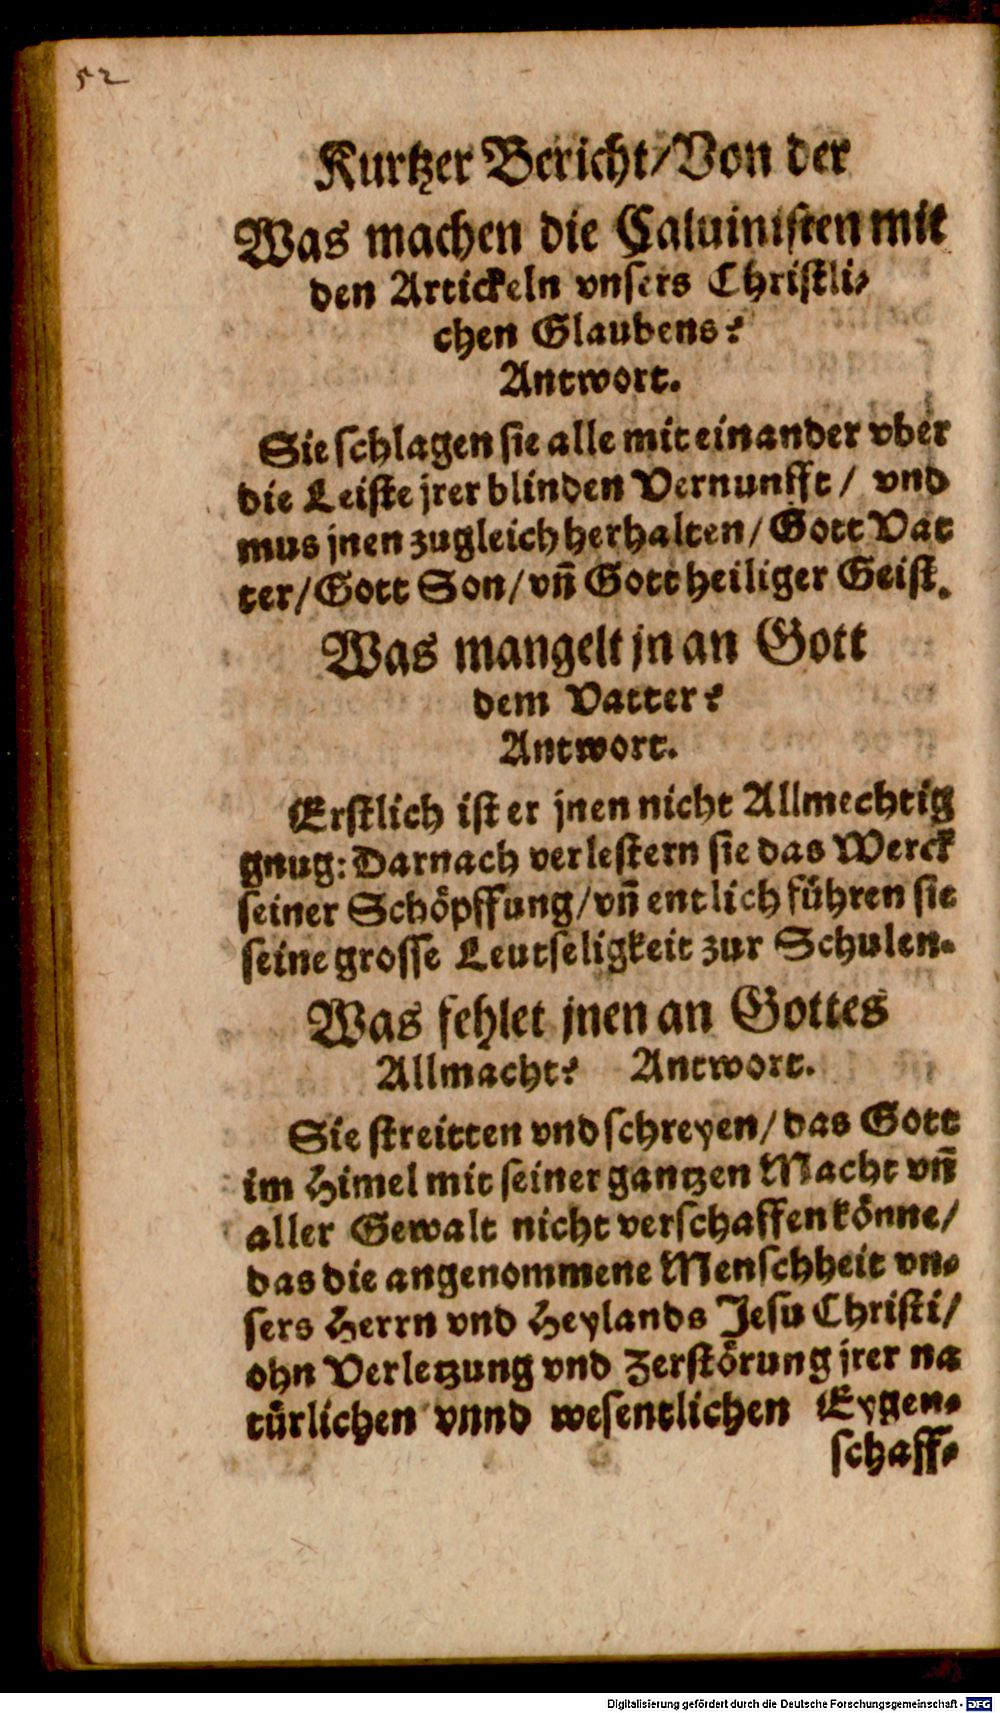 52
Kurtzer Bericht/Von der
Was machen die Caluinisten mit
den Artickeln vnsers Christli-
chen Glaubens?
Antwort.
Sie schlagen sie alle mit einander vber
die Leiste jrer blinden Vernunfft/ vnd
mus jnen zugleich herhalten/Gott Vat
ter/Gott Son/vñ Gott heiliger Geist.
Was mangelt jn an Gott
dem Vatter?
Antwort.
Erstlich ist er jnen nicht Allmechtig
gnug: Darnach verlestern sie das Werck
seiner Schöpffung/vñ entlich führen sie
seine grosse Leutseligkeit zur Schulen.
Was fehlet jnen an Gottes
Allmacht? Antwort.
Sie streitten vnd schreyen/das Gott
im Himel mit seiner gantzen Macht vñ
aller Gewalt nicht verschaffen könne/
das die angenommene Menschheit vn-
sers Herrn vnd Heylands Jesu Christi/
ohn Verletzung vnd Zerstörung jrer na
türlichen vnnd wesentlichen Eygen-
schaff-
Digitalisierung gefördert durch die Deutsche Forschungsgemeinschaft - DFG